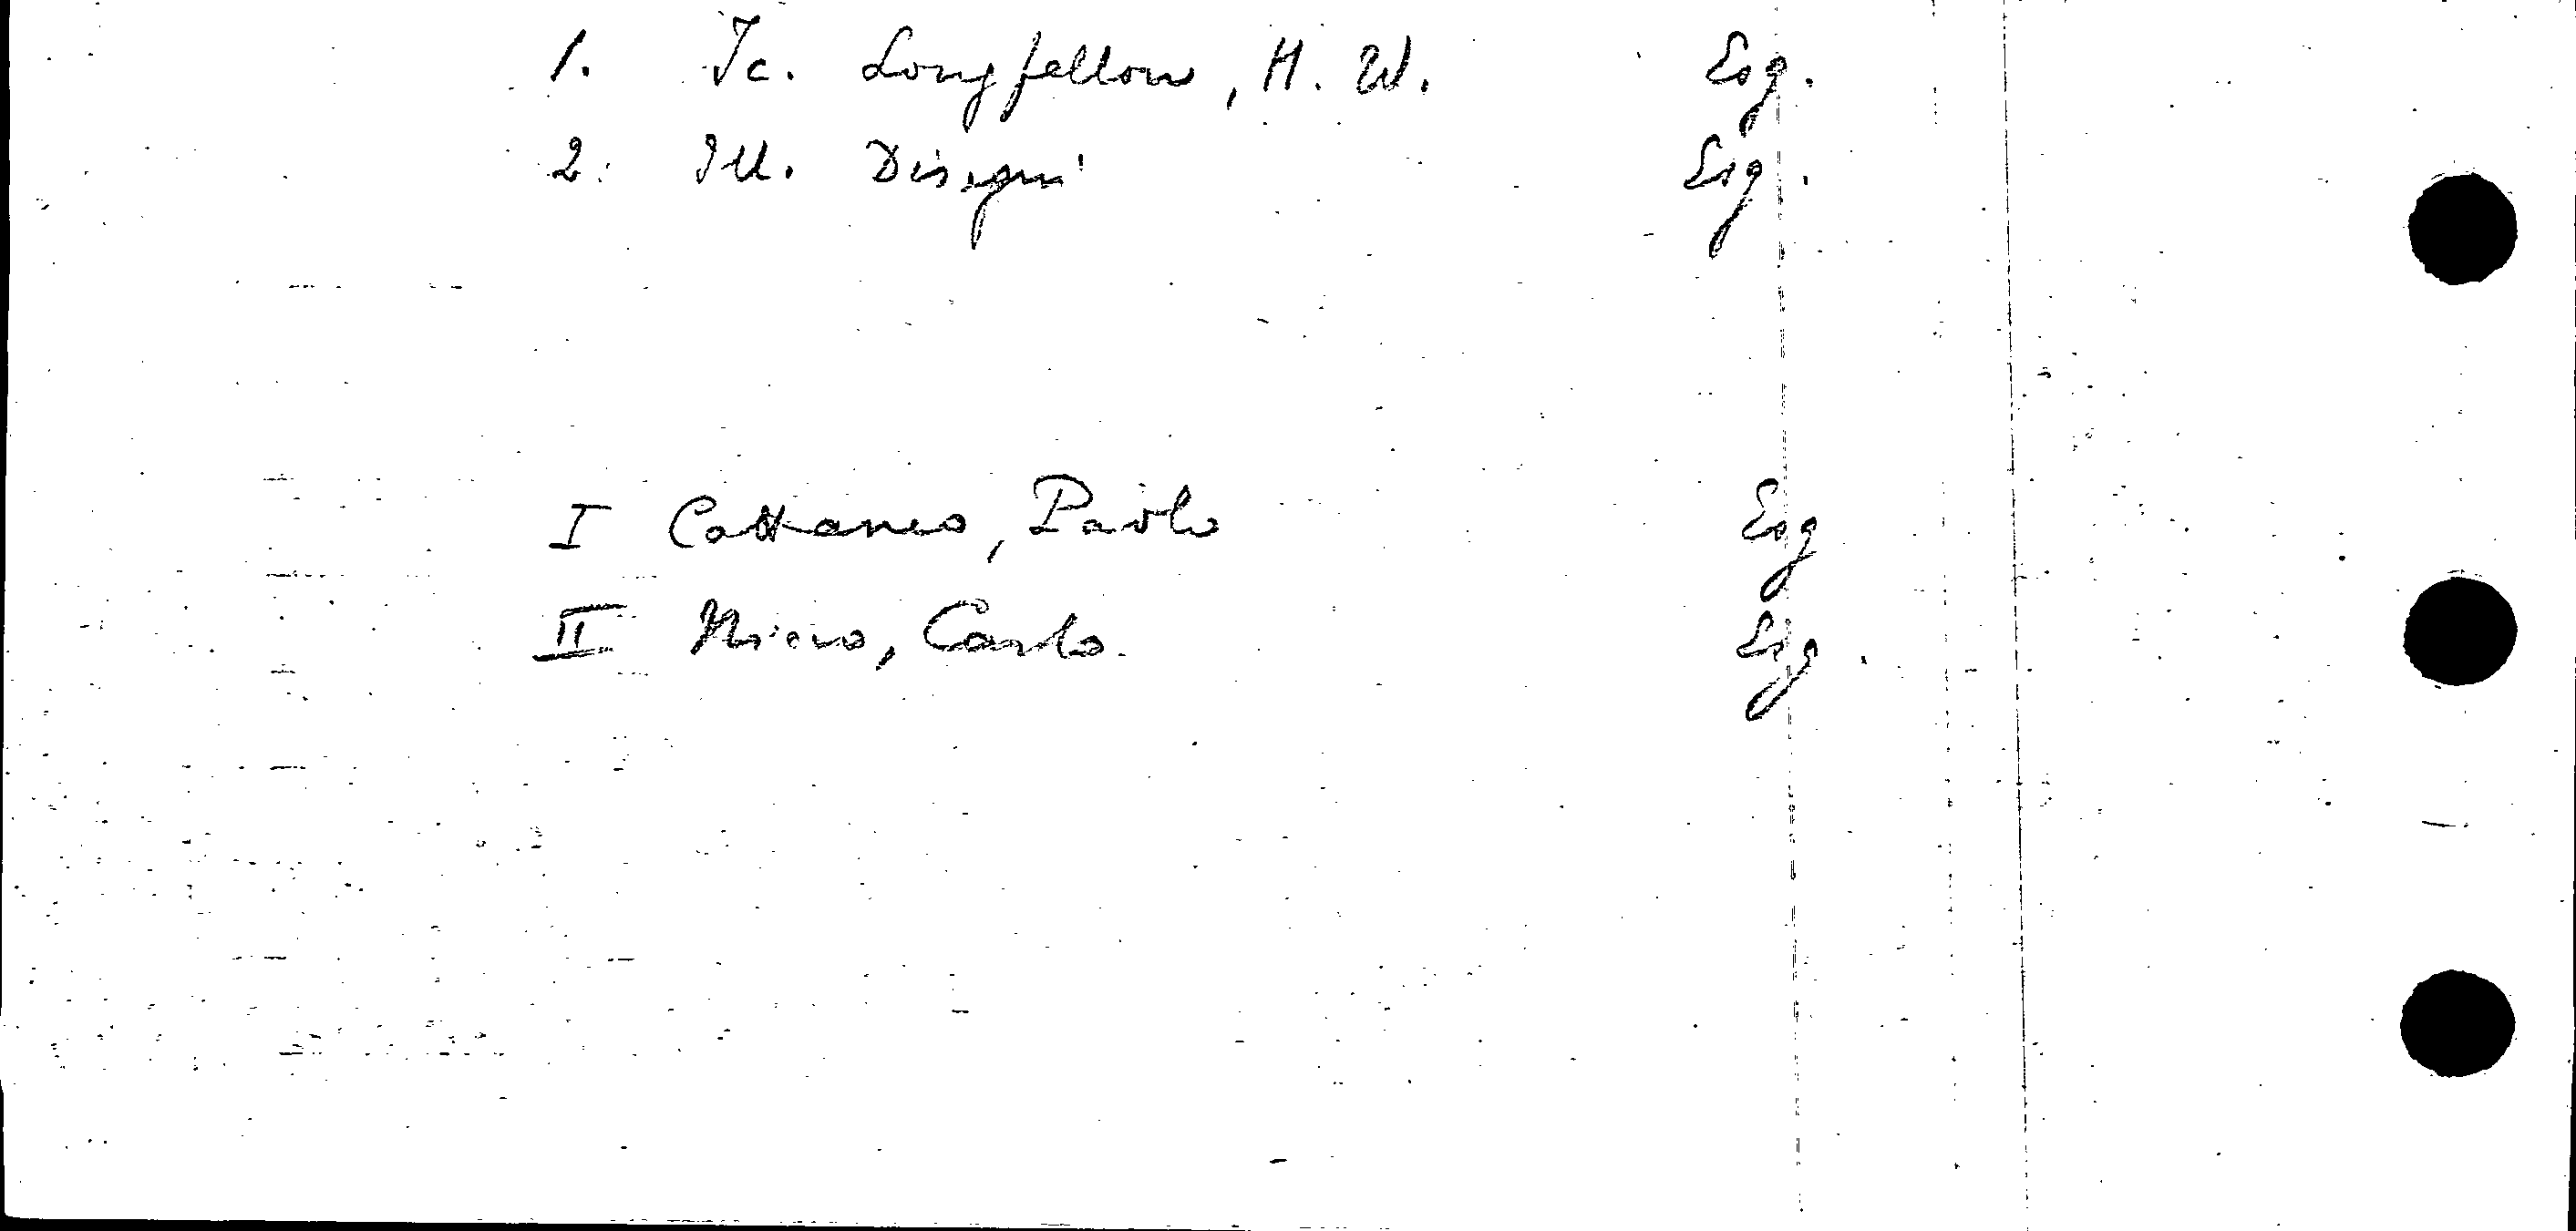 1. Ic. Longfellow, H. W. Esg.
2. Ill. Disegni Esg.
I Cattaneo, Paolo Esg
II Carlo. Esg.